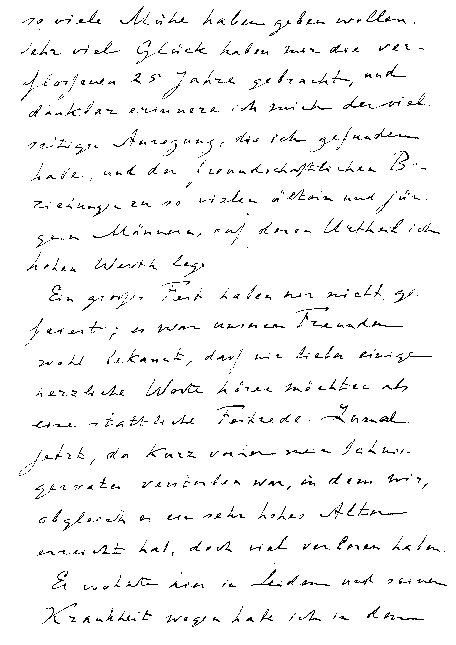 so viele Mühe haben geben wollen.
Sehr viel Glück haben mir die ver-
flossenen 25 Jahre gebracht, und
dankbar erinnere ich mich der viel-
seitigen Anregung, die ich gefunden
habe, und der freundschaftlichen Be-
ziehungen zu so vielen ältern und jün-
gern Männern, auf deren Urtheil ich
hohen Werth lege.
Ein grosses Fest haben wir nicht ge-
feiert; es war unseren Freunden
wohl bekannt, dass wir lieber einige
herzliche Worte hören möchten als
eine stattliche Festrede. Zumal
jetzt, da kurz vorher mein Schwie-
gervater verstorben war, in dem wir,
obgleich er ein sehr hohes Alter
erreicht hat, doch viel verloren haben.
Er wohnte hier in Leiden und seiner
Krankheit wegen habe ich in den